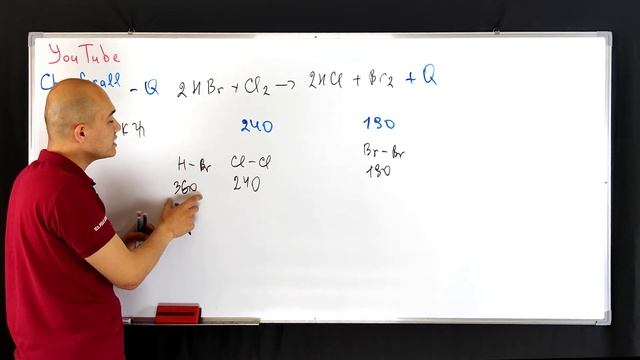 YouTube
- Q 2HBr + Cl2 → 2HCl + Br2 + Q
240 190
H-Br Cl-Cl Br-Br
360 240 190